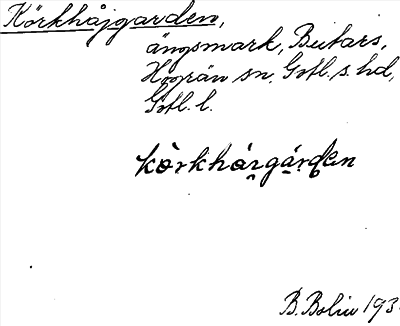 Körkhåjgarden,
ängsmark, Butars,
Hogrän sn. Gotl. s. hd,
Gotl. l.
B. Bolin 193